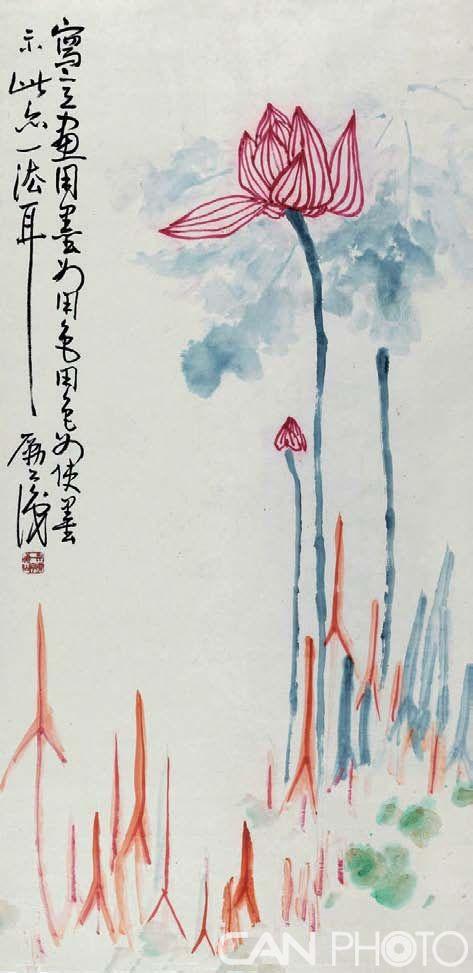 寫意画用墨如用色用色如使墨
示此亦一法耳
CANPHOTO